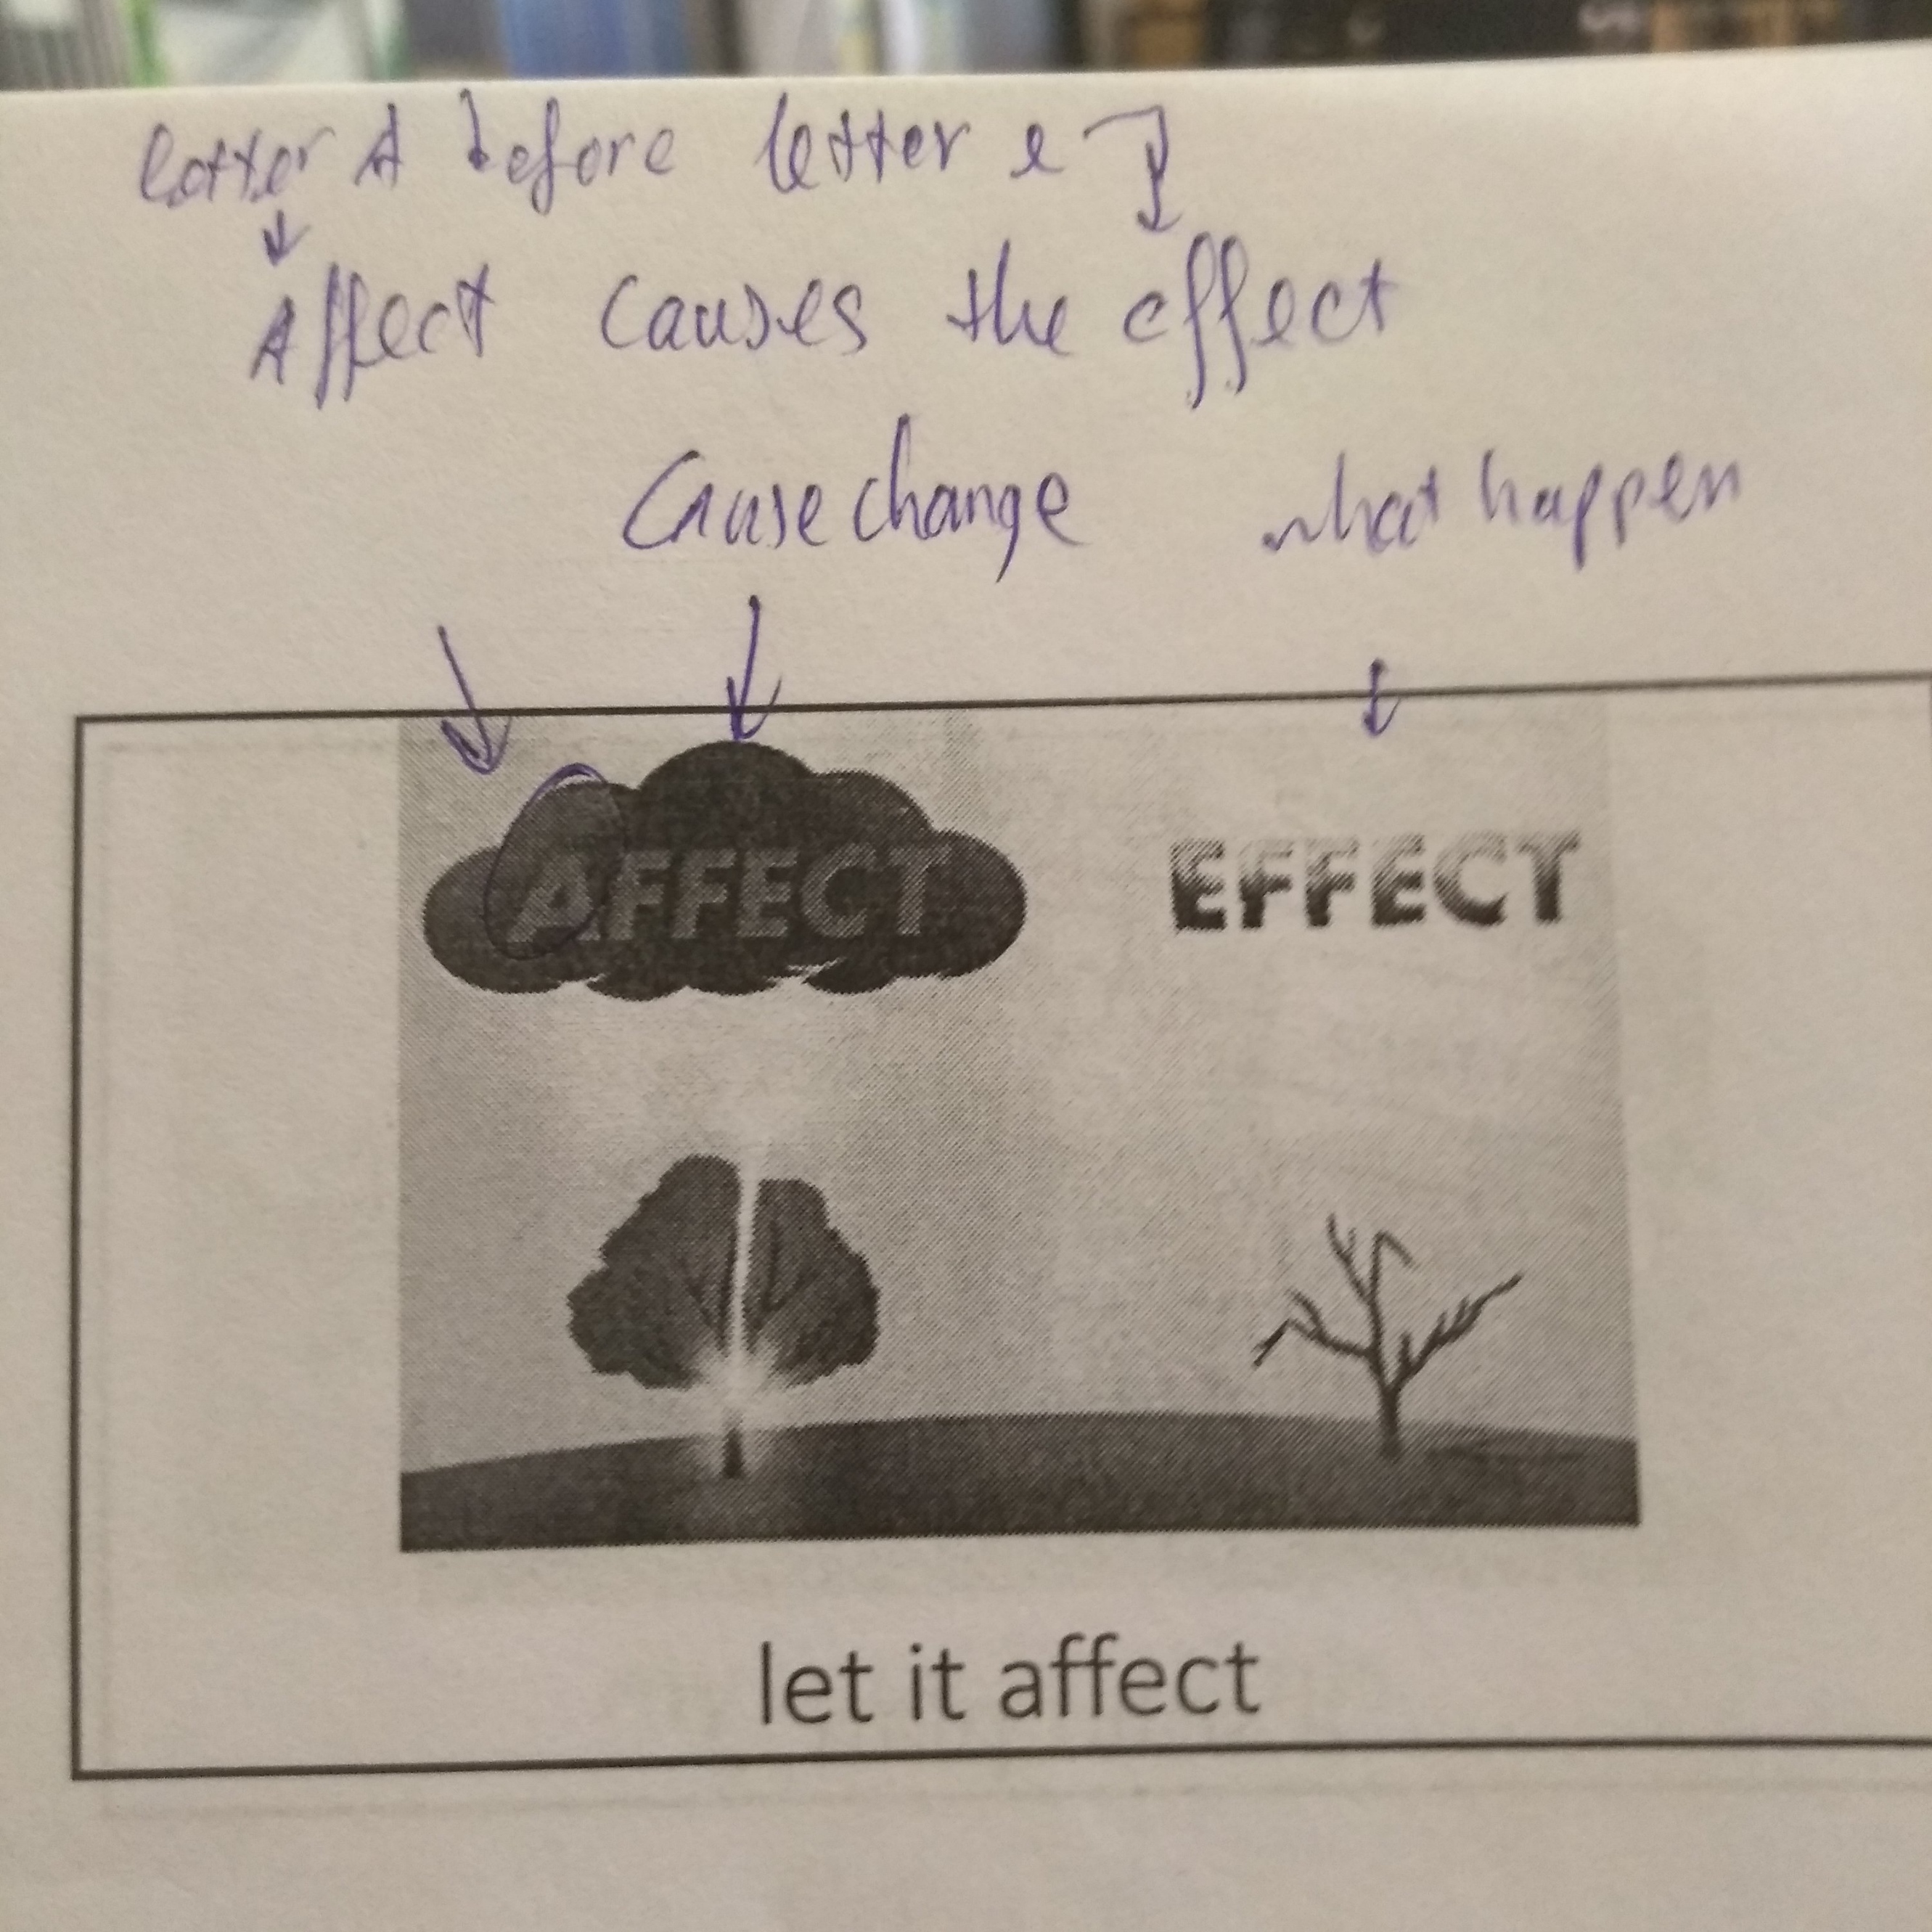 letter A before letter e
Affect causes the effect
Cause change what happen
AFFECT EFFECT
let it affect